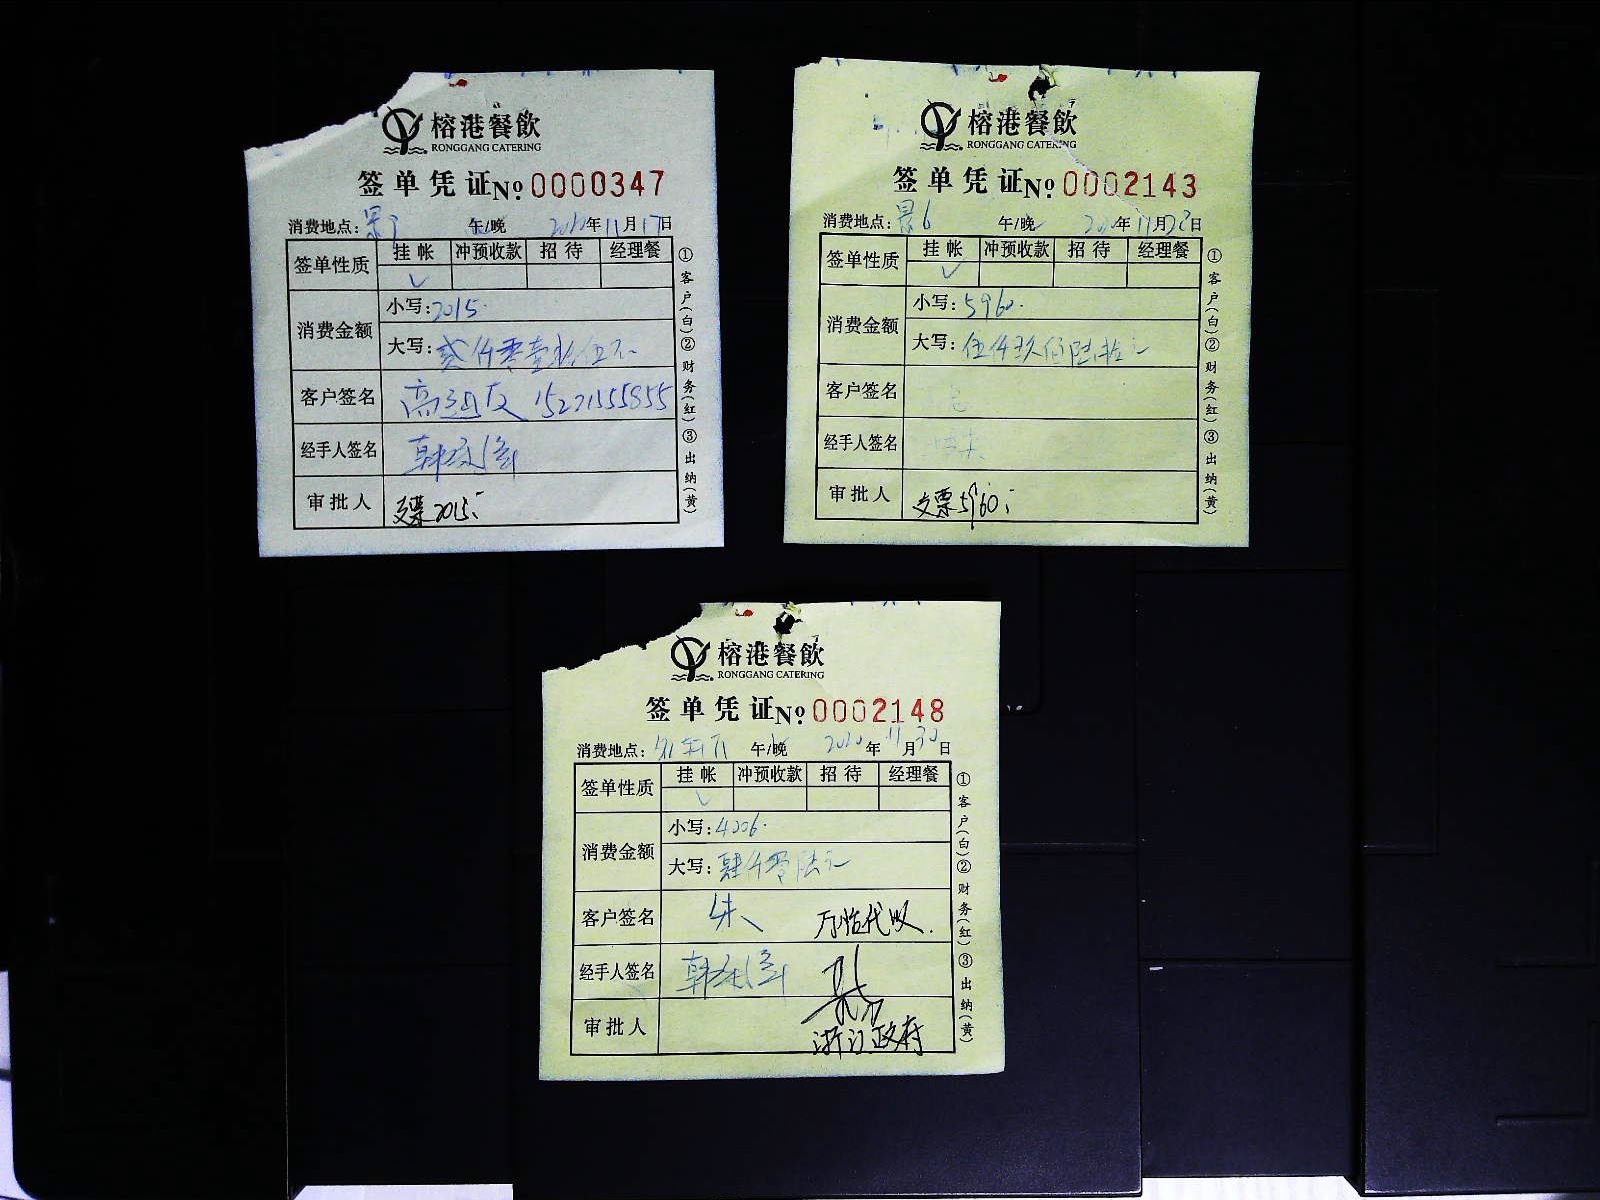 榕港餐飲
RONGGANG CATERING
签单凭证 No 0000347
消费地点: 景7 午/晚 2010年11月17日
签单性质 挂帐 冲预收款 招待 经理餐
✓
消费金额 小写: 2015.
大写: 贰仟零壹拾伍元
客户签名
经手人签名 韩
审批人 支票2015.
①客户(白)②财务(红)③出纳(黄)
榕港餐飲
RONGGANG CATERING
签单凭证 No 0002143
消费地点: 景6 午/晚 2010年11月28日
签单性质 挂帐 冲预收款 招待 经理餐
✓
消费金额 小写: 5960.
大写: 伍仟玖佰陆拾元
客户签名
经手人签名
审批人 支票5960.
①客户(白)②财务(红)③出纳(黄)
榕港餐飲
RONGGANG CATERING
签单凭证 No 0002148
消费地点: 午/晚 2010年11月30日
签单性质 挂帐 冲预收款 招待 经理餐
✓
消费金额 小写: 4006.
大写: 肆仟零陆元
客户签名 朱 万怡代收.
经手人签名 韩
审批人 浙江政府
①客户(白)②财务(红)③出纳(黄)